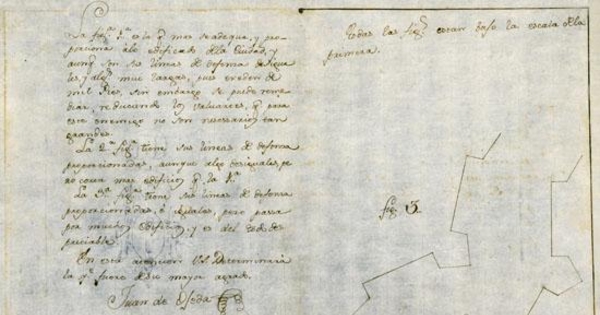 La fig.ª 1.ª es la q.e mas se adequa, y pro-
porciona a lo edificado de la Ciudad, y
aunq.e son sus lineas de defensa desigua-
les, y algo mui largas, pues exeden de
mil Pies, sin embargo se puede reme-
diar, reduciendo los valuartes, q.e para
este enemigo no son necesarios tan
grandes.
La 2.ª fig.ª tiene sus lineas de defensa
proporcionadas, aunque algo desiguales, pe-
ro coxe mas edificios q.e la 1.ª
La 3.ª fig.ª tiene sus lineas de defensa
proporcionadas, é iguales, pero passa
por muchos edificios, y es del todo des-
preciable.
En esta atencion V.S. Determinará
la q.e fuere de su mayor agrado.
Juan de
todas las fig.s estan baxo la escala de la
primera.
fig.ª 3.